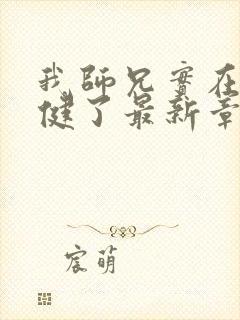 我師兄實在
健了最新章
宸萌